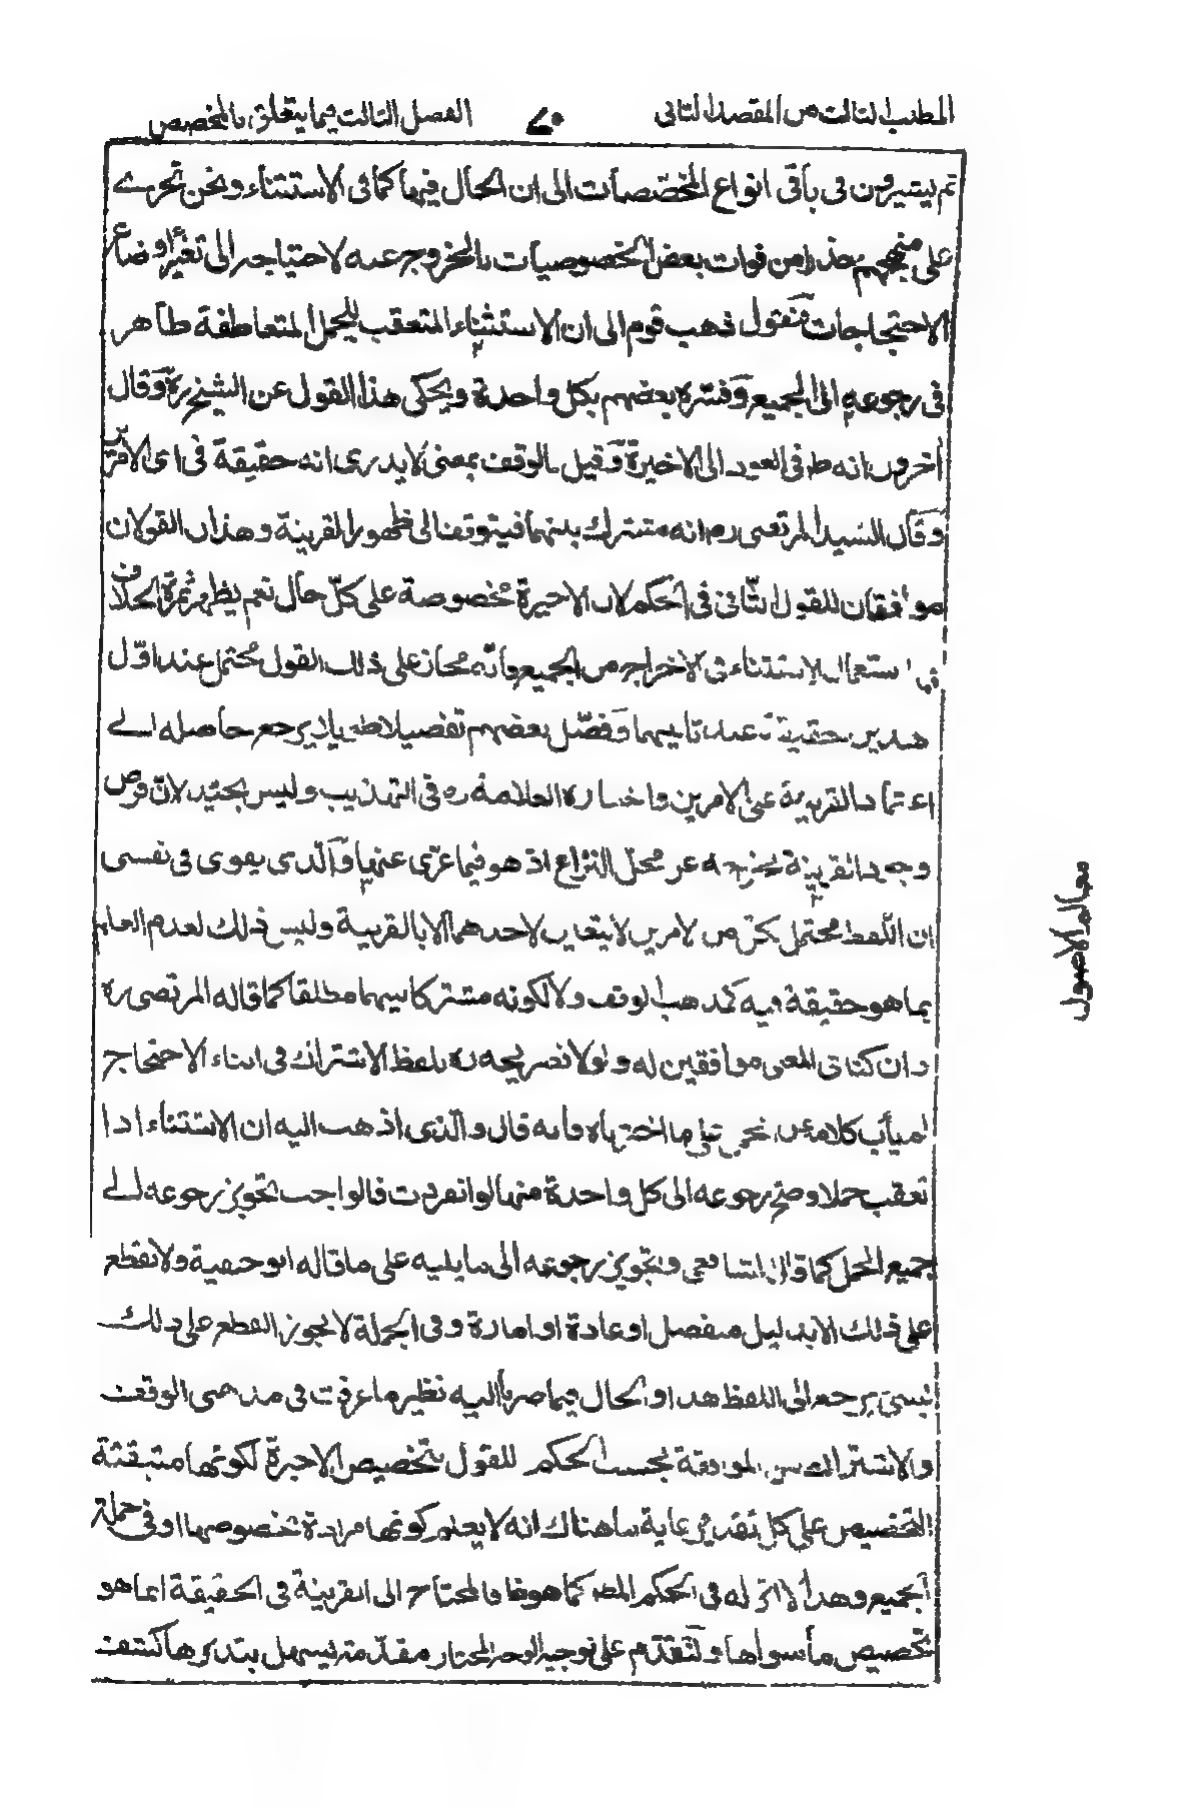 المطلب الثالث من المقصد الثانى
الفصل الثالث فيما يتعلق بالمخصص
ثم يشيرون فى باقى انواع المخصصات الى ان الحال فيها كما فى الاستثناء ونحن نجرى
على منهجهم حذرا من فوات بعض الخصوصيات بالخروج عنه لاحتياجه الى تغيير اوضاع
الاحتجاجات فنقول ذهب قوم الى ان الاستثناء المتعقب للجمل المتعاطفة ظاهر
فى رجوعه الى الجميع وفسّره بعضهم بكل واحدة ويحكى هذا القول عن الشيخ ره وقال
اخرون انه ظ فى العود الى الاخيرة وقيل بالوقف بمعنى لا يدرى انه حقيقة فى اى الامرين
وقال السّيد المرتضى ره انه مشترك بينهما فيتوقف الى ظهور القرينة وهذان القولان
موافقان للقول الثّانى فى الحكم لان الاخيرة مخصوصة على كلّ حال نعم يظهر ثمرة الخلاف
فى استعمال الاستثناء فى الاخراج من الجميع فانّه مجاز على ذلك القول محتمل عند اوّل
هذين حقيقة عند ثانيهما وفصّل بعضهم تفصيلا طويلا يرجع حاصله الى
اعتماد القرينة على الامرين واختاره العلامة ره فى التهذيب وليس بجيّد لانّ فرض
وجود القرينة يخرجه عن محلّ النزاع اذ هو فيما عرّى عنها والّذى يقوى فى نفسى
ان اللّفظ محتمل لكل من الامرين لا يتعين لاحدهما الا بالقرينة وليس ذلك لعدم العلم
بما هو حقيقة فيه كمذهب الوقف ولا لكونه مشتركا بينهما مطلقا كما قاله المرتضى ره
وان كنا فى المعنى موافقين له ولولا تصريحه ره بلفظ الاشتراك فى اثناء الاحتجاج
لم يأب كلامه عن الحمل على ما اخترناه فانه قال والّذى اذهب اليه ان الاستثناء اذا
تعقب جملا وصحّ رجوعه الى كل واحدة منها لو انفردت فالواجب تجويز رجوعه الى
جميع الجمل كما قال الشافعى وتجويز رجوعه الى ما يليه على ما قاله ابو حنيفة ولا نقطع
على ذلك الا بدليل منفصل او عادة او امارة وفى الجملة لا يجوز القطع على ذلك
لشىء يرجع الى اللفظ هذا والحال فيما صرنا اليه نظير ما عرفت فى مذهبى الوقف
والاشتراك من الموافقة بحسب الحكم للقول بتخصيص الاخيرة لكونها متيقنة
التخصيص على كل تقدير غاية ما هناك انه لا يعلم كونها مرادة بخصوصها او فى جملة
الجميع وهذا لا اثر له فى الحكم المط كما هو ظ فالمحتاج الى القرينة فى الحقيقة انما هو
تخصيص ما سواها ولنقدّم على توجيه الوجه المختار مقدّمة يسهل بتدبرها كشف
معالم الاصول